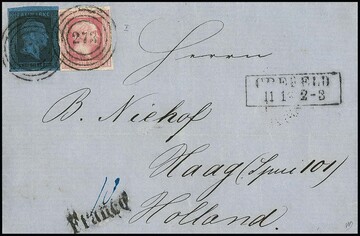 273
Herrn
CREFELD
11 1 - 2-3
B. Niehof
Haag (Spui 101)
Holland.
Franco